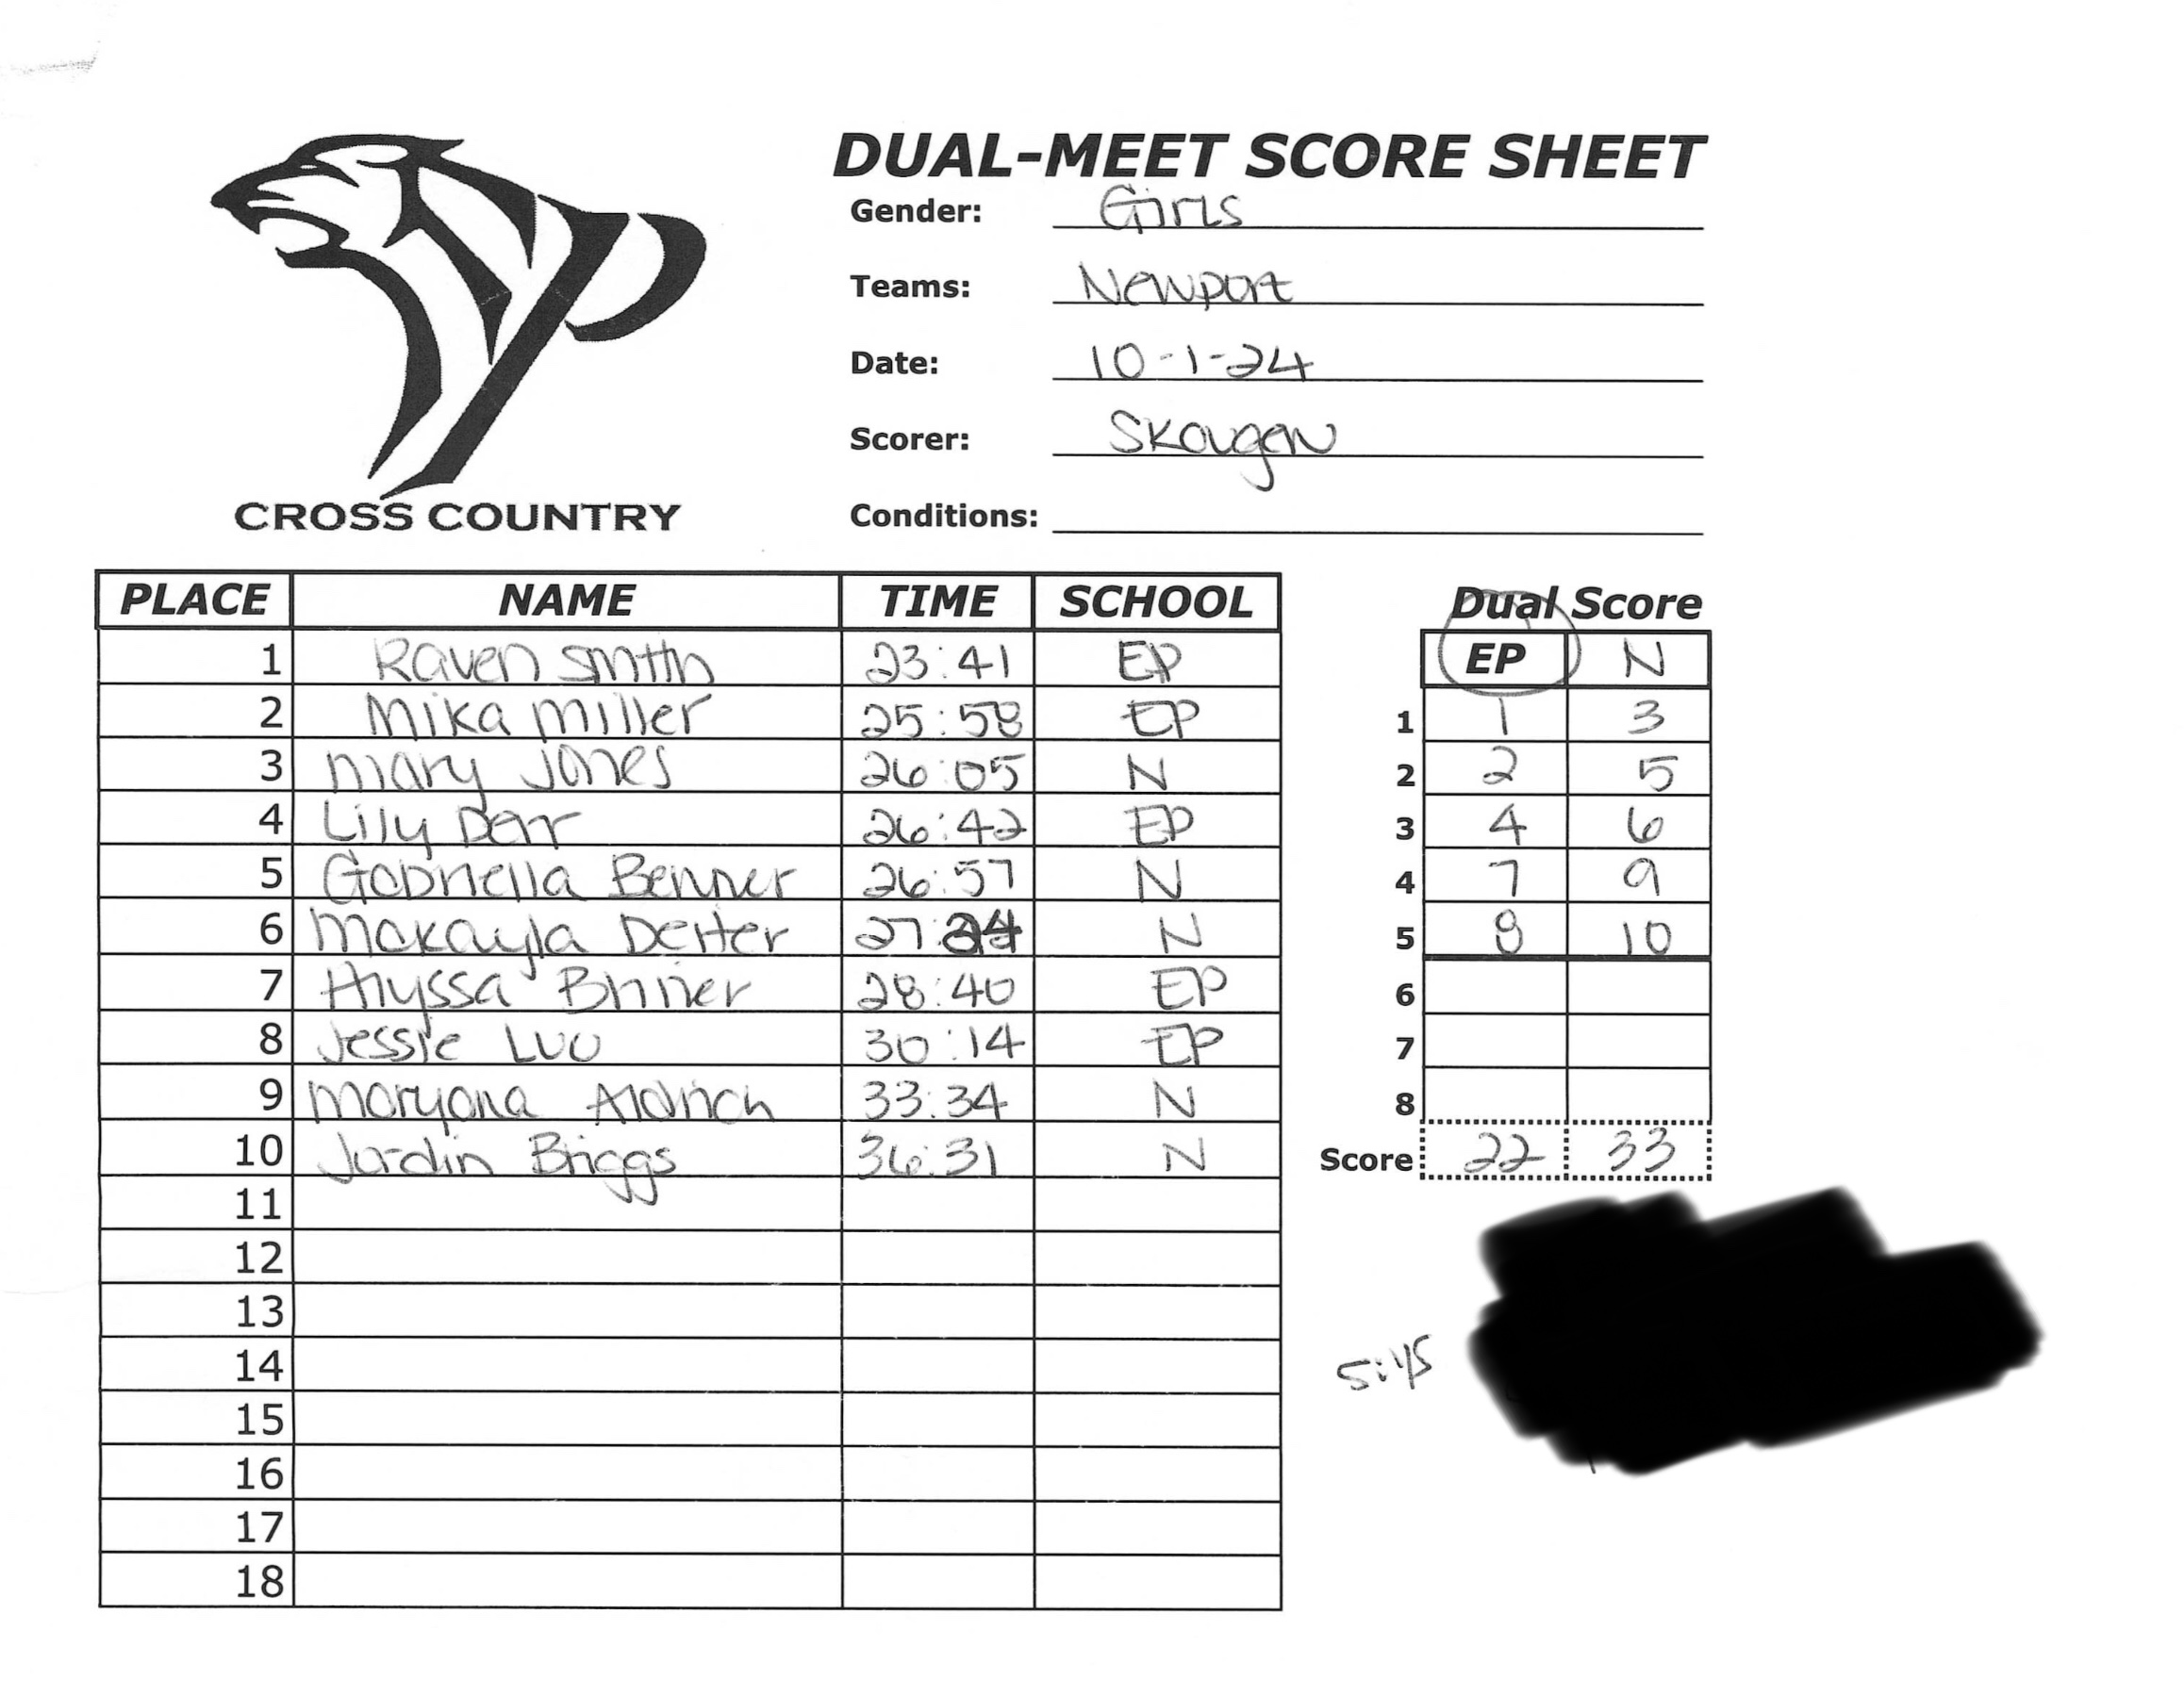 DUAL-MEET SCORE SHEET
Gender: Girls
Teams: Newport
Date: 10-1-24
Scorer: Skougen
Conditions:
CROSS COUNTRY
PLACE NAME TIME SCHOOL
1 Raven Smith 23:41 EP
2 Mika Miller 25:58 EP
3 Mary Jones 26:05 N
4 Lily Derr 26:42 EP
5 Gabriella Benner 26:57 N
6 Makayla Deiter 27:24 N
7 Alyssa Briner 28:40 EP
8 Jessie Luu 30:14 EP
9 Maryona Aldrich 33:34 N
10 Jordin Briggs 36:31 N
11
12
13
14
15
16
17
18
Dual Score
EP N
1 1 3
2 2 5
3 4 6
4 7 9
5 8 10
6
7
8
Score 22 33
5:45